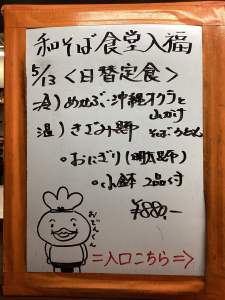 和そば食堂入福
5/13<日替定食>
冷)めかぶ・沖縄オクラと
山かけ
温)きざみ野
そば・うどん
。おにぎり(明太
。小鉢 2品付
¥880,-
おでんくん
=入口こちら=>